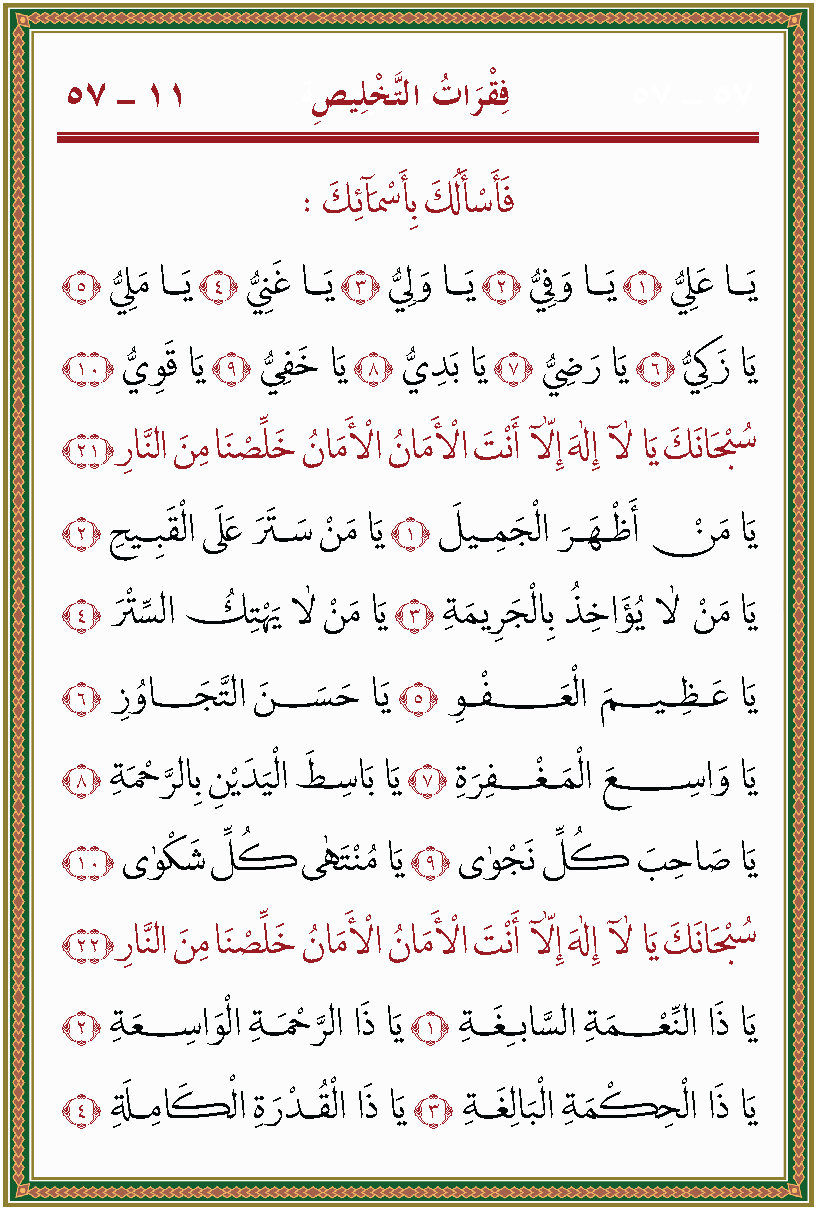 فِقْرَاتُ التَّخْلِيصِ ١١ ــ ٥٧
فَأَسْأَلُكَ بِأَسْمَآئِكَ :
يَا عَلِيُّ ﴿١﴾ يَا وَفِيُّ ﴿٢﴾ يَا وَلِيُّ ﴿٣﴾ يَا غَنِيُّ ﴿٤﴾ يَا مَلِيُّ ﴿٥﴾
يَا زَكِيُّ ﴿٦﴾ يَا رَضِيُّ ﴿٧﴾ يَا بَدِيُّ ﴿٨﴾ يَا خَفِيُّ ﴿٩﴾ يَا قَوِيُّ ﴿١٠﴾
سُبْحَانَكَ يَا لَآ إِلٰهَ إِلَّآ أَنْتَ الْأَمَانُ الْأَمَانُ خَلِّصْنَا مِنَ النَّارِ ﴿٢١﴾
يَا مَنْ أَظْهَرَ الْجَمِيلَ ﴿١﴾ يَا مَنْ سَتَرَ عَلَى الْقَبِيحِ ﴿٢﴾
يَا مَنْ لَا يُؤَاخِذُ بِالْجَرِيمَةِ ﴿٣﴾ يَا مَنْ لَا يَهْتِكُ السِّتْرَ ﴿٤﴾
يَا عَظِيمَ الْعَفْوِ ﴿٥﴾ يَا حَسَنَ التَّجَاوُزِ ﴿٦﴾
يَا وَاسِعَ الْمَغْفِرَةِ ﴿٧﴾ يَا بَاسِطَ الْيَدَيْنِ بِالرَّحْمَةِ ﴿٨﴾
يَا صَاحِبَ كُلِّ نَجْوٰى ﴿٩﴾ يَا مُنْتَهٰى كُلِّ شَكْوٰى ﴿١٠﴾
سُبْحَانَكَ يَا لَآ إِلٰهَ إِلَّآ أَنْتَ الْأَمَانُ الْأَمَانُ خَلِّصْنَا مِنَ النَّارِ ﴿٢٢﴾
يَا ذَا النِّعْمَةِ السَّابِغَةِ ﴿١﴾ يَا ذَا الرَّحْمَةِ الْوَاسِعَةِ ﴿٢﴾
يَا ذَا الْحِكْمَةِ الْبَالِغَةِ ﴿٣﴾ يَا ذَا الْقُدْرَةِ الْكَامِلَةِ ﴿٤﴾